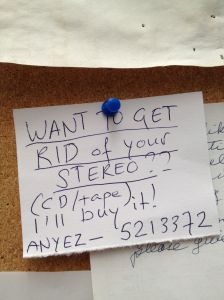 WANT TO GET
RID of your
STEREO??
(CD/tape)
I'll buy it!
ANYEZ- 5213372
please